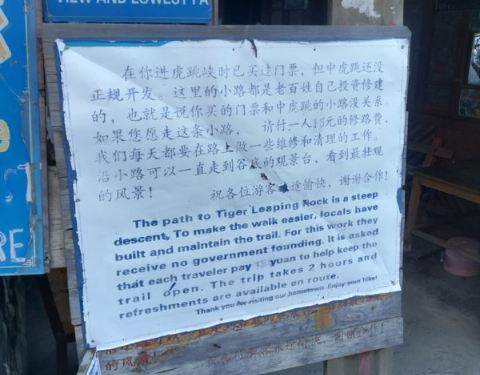 VIEW AND LOWEST PA
在你进虎跳峡时已买过门票，但中虎跳还没
正规开发。这里的小路都是老百姓自己投资修建
的，也就是说你买的门票和中虎跳的小路没关系，
如果您愿走这条小路， 请付一人15元的修路费，
我们每天都要在路上做一些维修和清理的工作。
沿小路可以一直走到谷底的观景台，看到最壮观
的风景！ 祝各位游客 途愉快，谢谢合作！
The path to Tiger Leaping Rock is a steep
descent. To make the walk easier, locals have
built and maintain the trail. For this work they
receive no government founding. It is asked
that each traveler pay 15 yuan to help keep the
trail open. The trip takes 2 hours and
refreshments are available en route.
Thank you for visiting our hometown. Enjoy your hike!
RE
的风